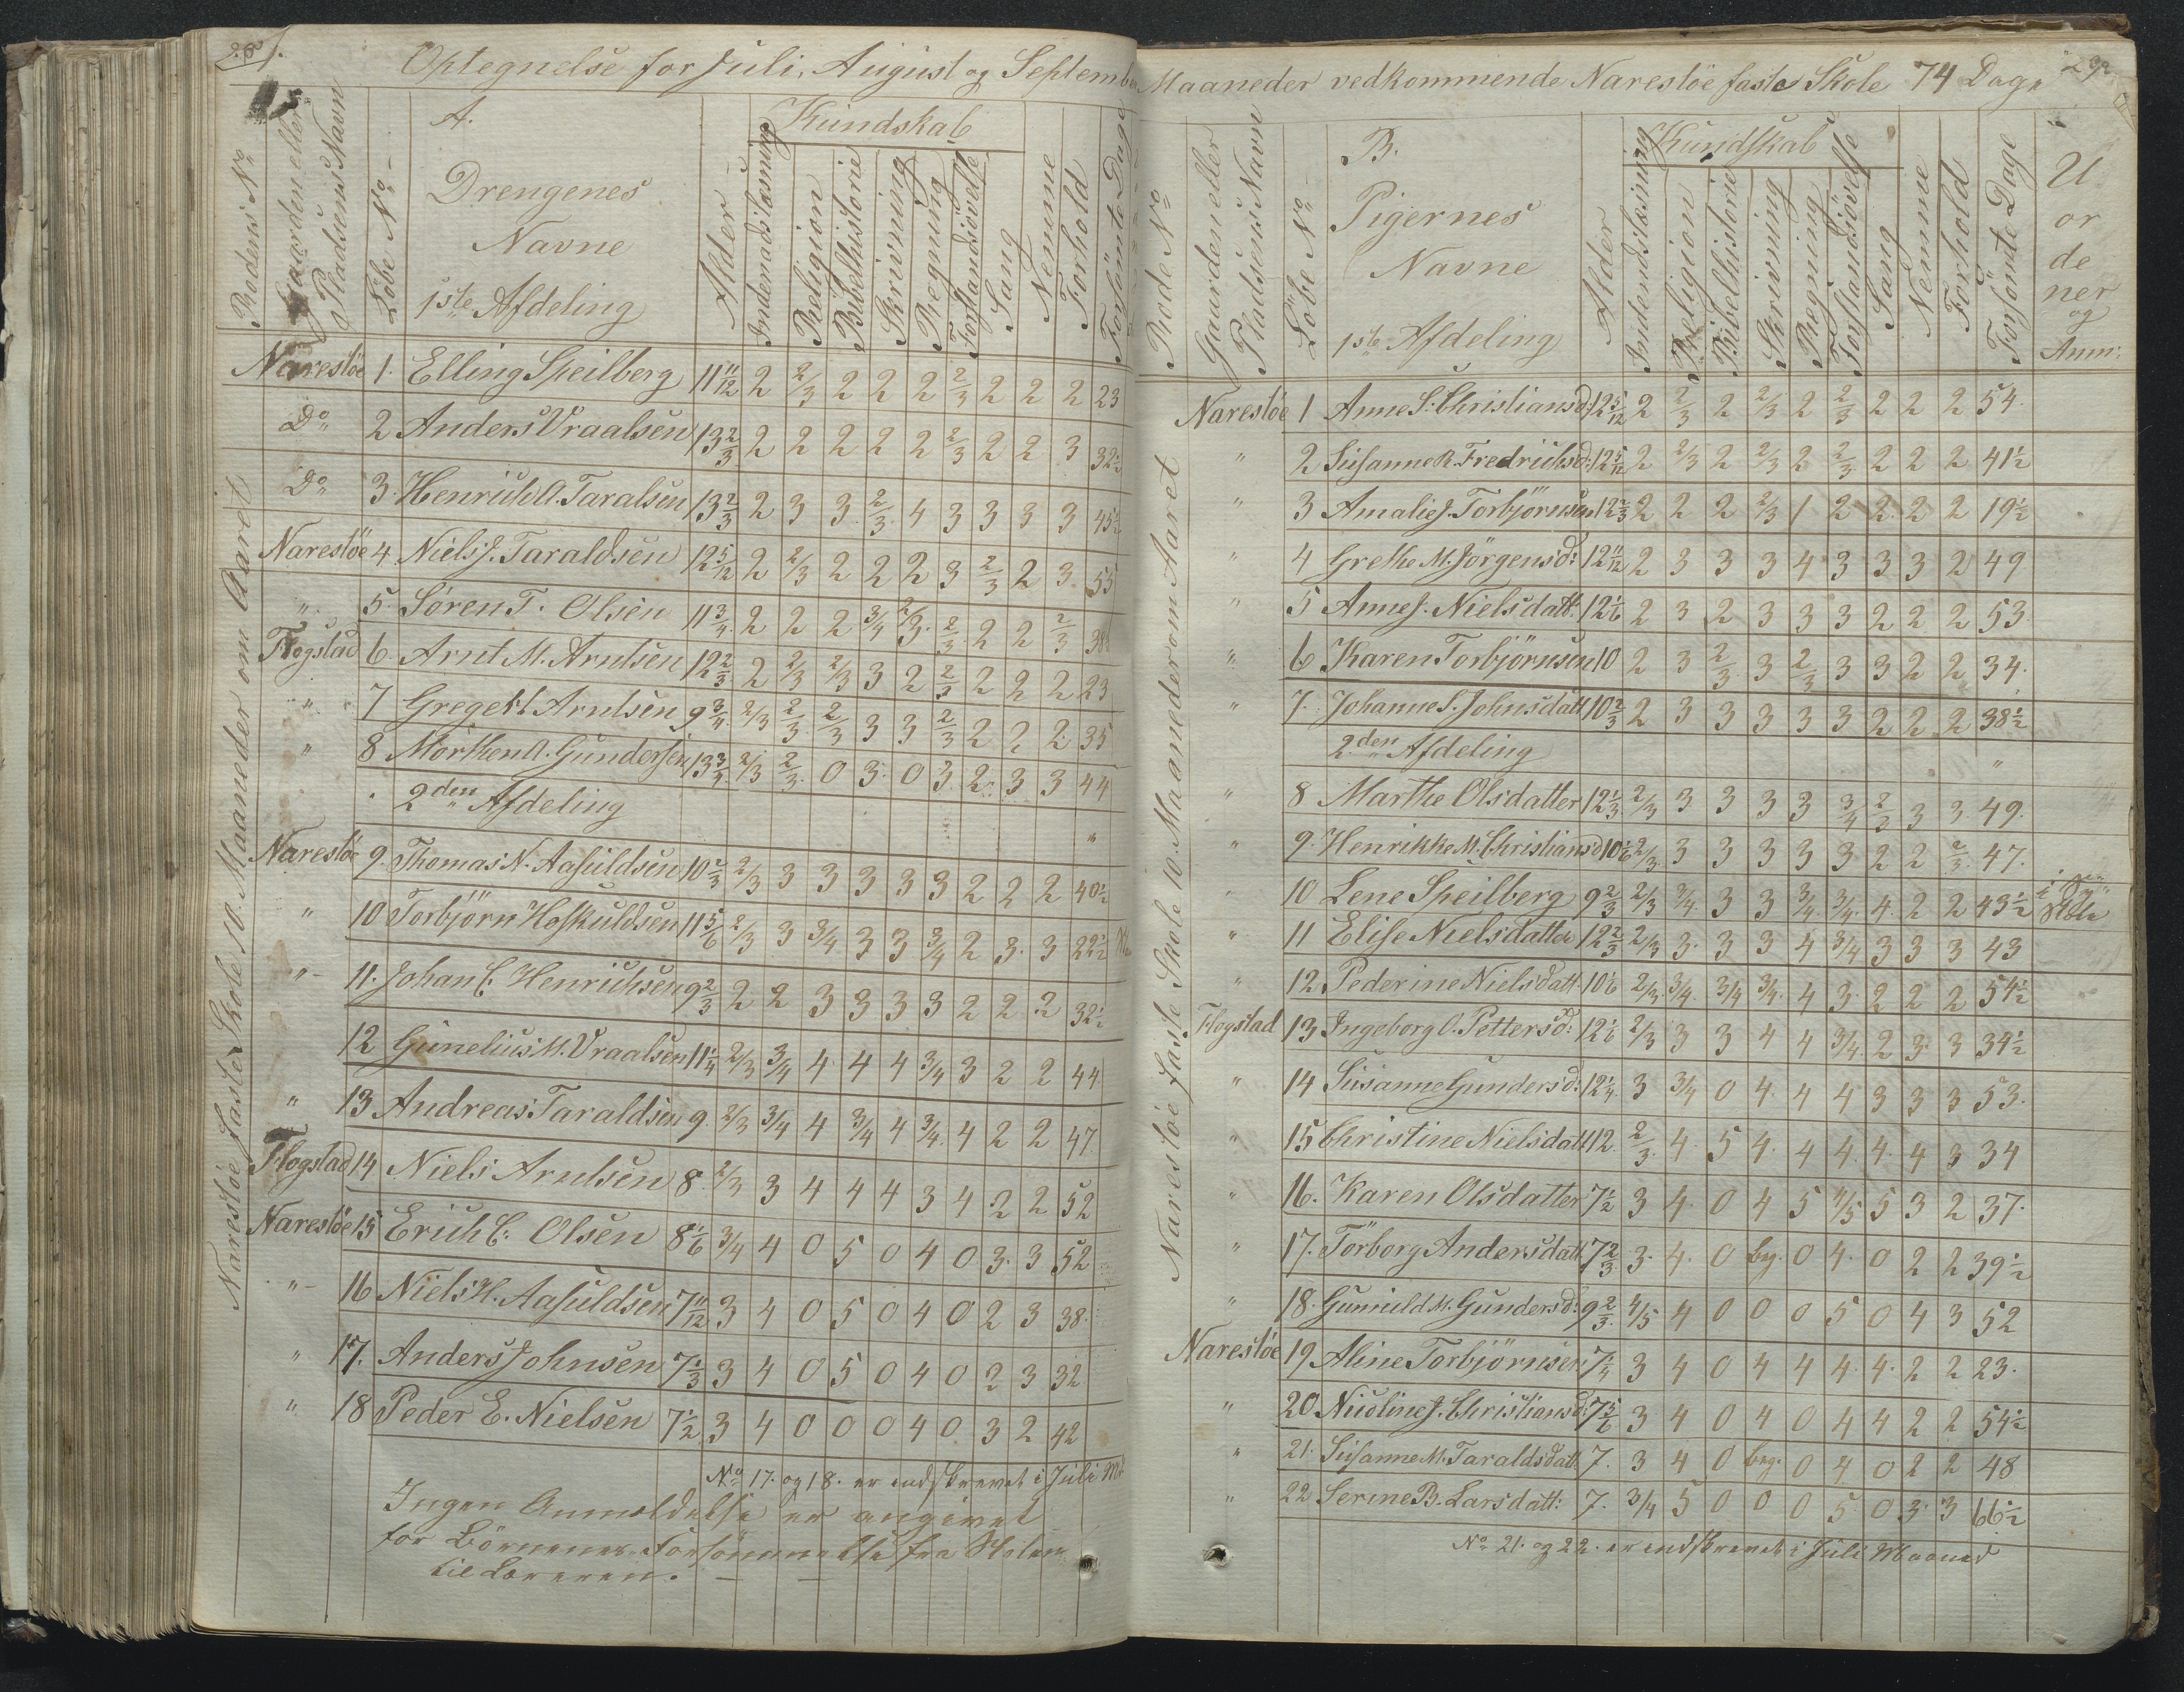 Optegnelse for Juli, August og September
Rodens No
Gaarden eller Pladsens Navn
Löbe No
A.
Drengenes
Navne
1ste Afdeling
Alder
Kundskab
Indenadslæsning
Religion
Bibelhistorie
Skrivning
Regning
Forstandsövelse
Sang
Nemme
Forhold
Forsömte Dage
Narestöe faste Skole 10 Maaneder om Aaret
Narestöe 1. Elling Speilberg 11 11/12 2 2/3 2 2 2 2/3 2 2 2 23
Do 2 Anders Vraalsen 13 2/3 2 2 2 2 2 2/3 2 2 3 32½
Do 3. Henrich A. Taralsen 13 2/3 2 3 3 2/3 4 3 3 3 3 45½
Narestöe 4. Niels J. Taraldsen 12 5/12 2 2/3 2 2 2 3 2/3 2 3. 55
" 5. Søren T. Olsen 11 3/4 2 2 2 3/4 2/3 2/3 2 2 2/3
Flogstad 6. Arnt M. Arntsen 12 2/3 2 2/3 2/3 3 2 2/3 2 2 2 23
" 7 Gregert Arntsen 9 3/4 2/3 2/3 2/3 3 3 2/3 2 2 2 35
" 8 Morthen A. Gundersen 13 3/4 2/3 2/3 0 3. 0 3 2. 3 3 44
2den Afdeling
Narestöe 9. Thomas N. Aasuldsen 10 2/3 2/3 3 3 3 3 3 2 2 2 40½
" 10 Torbjörn Hoskuldsen 11 5/6 2/3 3 3/4 3 3 3/4 2 3. 3 22½
" 11. Johan C. Henrichsen 9 2/3 2 2 3 3 3 3 2 2 2 32½
12 Gunelius M. Vraalsen 11 1/4 2/3 3/4 4 4 4 3/4 3 2 2 44
" 13 Andreas Taraldsen 9. 2/3 3/4 4 3/4 4 3/4 4 2 2 47
Flogstad 14 Niels Arntsen 8 2/3 3 4 4 4 3 4 2 2 52
Narestöe 15 Erich C. Olsen 8 1/6 3/4 4 0 5 0 4 0 3. 3 52
" 16 Niels H. Aasuldsen 7 11/12 3 4 0 5 0 4 0 2 3 38.
" 17. Anders Johnsen 7 1/3 3 4 0 5 0 4 0 2 3 32
" 18 Peder E. Nielsen 7½ 3 4 0 0 0 4 0 3 2 42
No 17. og 18. er indskrevet i Juli Md
Ingen Anmeldelse er angivet
for Börnenes Forsömmelse fra Skolen
til Læreren.
Maaneder vedkommende Narestöe faste Skole 74 Dage
Rode No
Gaarden eller Pladsens Navn
Löbe No
B.
Pigernes
Navne
1ste Afdeling
Alder
Kundskab
Indendslæsning
Religion
Bibelhistorie
Skrivning
Regning
Forstandsövelse
Sang
Nemme
Forhold
Forsömte Dage
U
or
de
ner
og
Anm:
Narestöe faste Skole 10. Maaneder om Aaret
Narestöe 1 Anne S. Christiansd: 12 5/12 2 2/3 2 2/3 2 2/3 2 2 2 54.
" 2 Susanne R. Fredrichsd: 12 5/12 2 2/3 2 2/3 2 2/3 2 2 2 41½
" 3 Amalie J. Torbjörnsen 12 2/3 2 2 2 2/3 1 2 2 2 2 19½
" 4 Grethe M. Jörgensd: 12 11/12 2 3 3 3 4 3 3 3 2 49
" 5 Anne J. Nielsdatt: 12 1/6 2 3 2 3 3 3 2 2 2 53
" 6 Karen Torbjörnsen 10 2 3 2/3 3 2/3 3 3 2 2 34.
" 7. Johanne S. Johnsdatt 10 2/3 2 3 3 3 3 3 2 2 2 38½
2den Afdeling
" 8 Marthe Olsdatter 12 1/3 2/3 3 3 3 3 3/4 2/3 3 3 49.
" 9. Henrikke M. Christiansd 10 1/6 2/3 3 3 3 3 3 2 2 2/3 47.
" 10 Lene Speilberg 9 2/3 2/3 3/4 3 3 3/4 3/4 4. 2 2 43½
" 11 Elise Nielsdatter 12 2/3 2/3 3. 3 3 4 3/4 3 3 3 43
" 12. Pederine Nielsdatt. 10 1/6 2/3 3/4 3/4 3/4 4 3. 2 2 2 54½
Flogstad 13 Ingeborg O. Pettersd: 12 1/6 2/3 3 3 4 4 3/4 2 3. 3 34½
" 14 Susanne Gundersd: 12 1/4 3 3/4 0 4. 4 4 3 3 3 53.
" 15 Christine Nielsdatt 12 2/3 4. 5 4. 4 4. 4. 4 3 34
" 16. Karen Olsdatter 7½ 3 4. 0 4 5 4/5 5 3 2 37.
" 17. Torborg Andersdatt. 7 2/3 3. 4. 0 bg. 0 4. 0 2 2 39½
" 18. Gunuld M. Gundersd: 9 2/3 4/5 4 0 0 0 5 0 4 3 52
Narestöe 19 Aline Torbjörnsen 7 1/4 3 4 0 4 4 4. 4. 2 2 23.
" 20 Nicoline J. Christiansd: 7 5/6 3 4 0 4 0 4 4 2 2 54½
" 21. Susanne M. Taraldsdatt. 7. 3 4 0 beg. 0 4 0 2 2 48
" 22 Serine B. Larsdatt: 7. 3/4 5 0 0 0 5. 0 3. 3 66½
No 21. og 22. er indskrevet i Juli Maaned